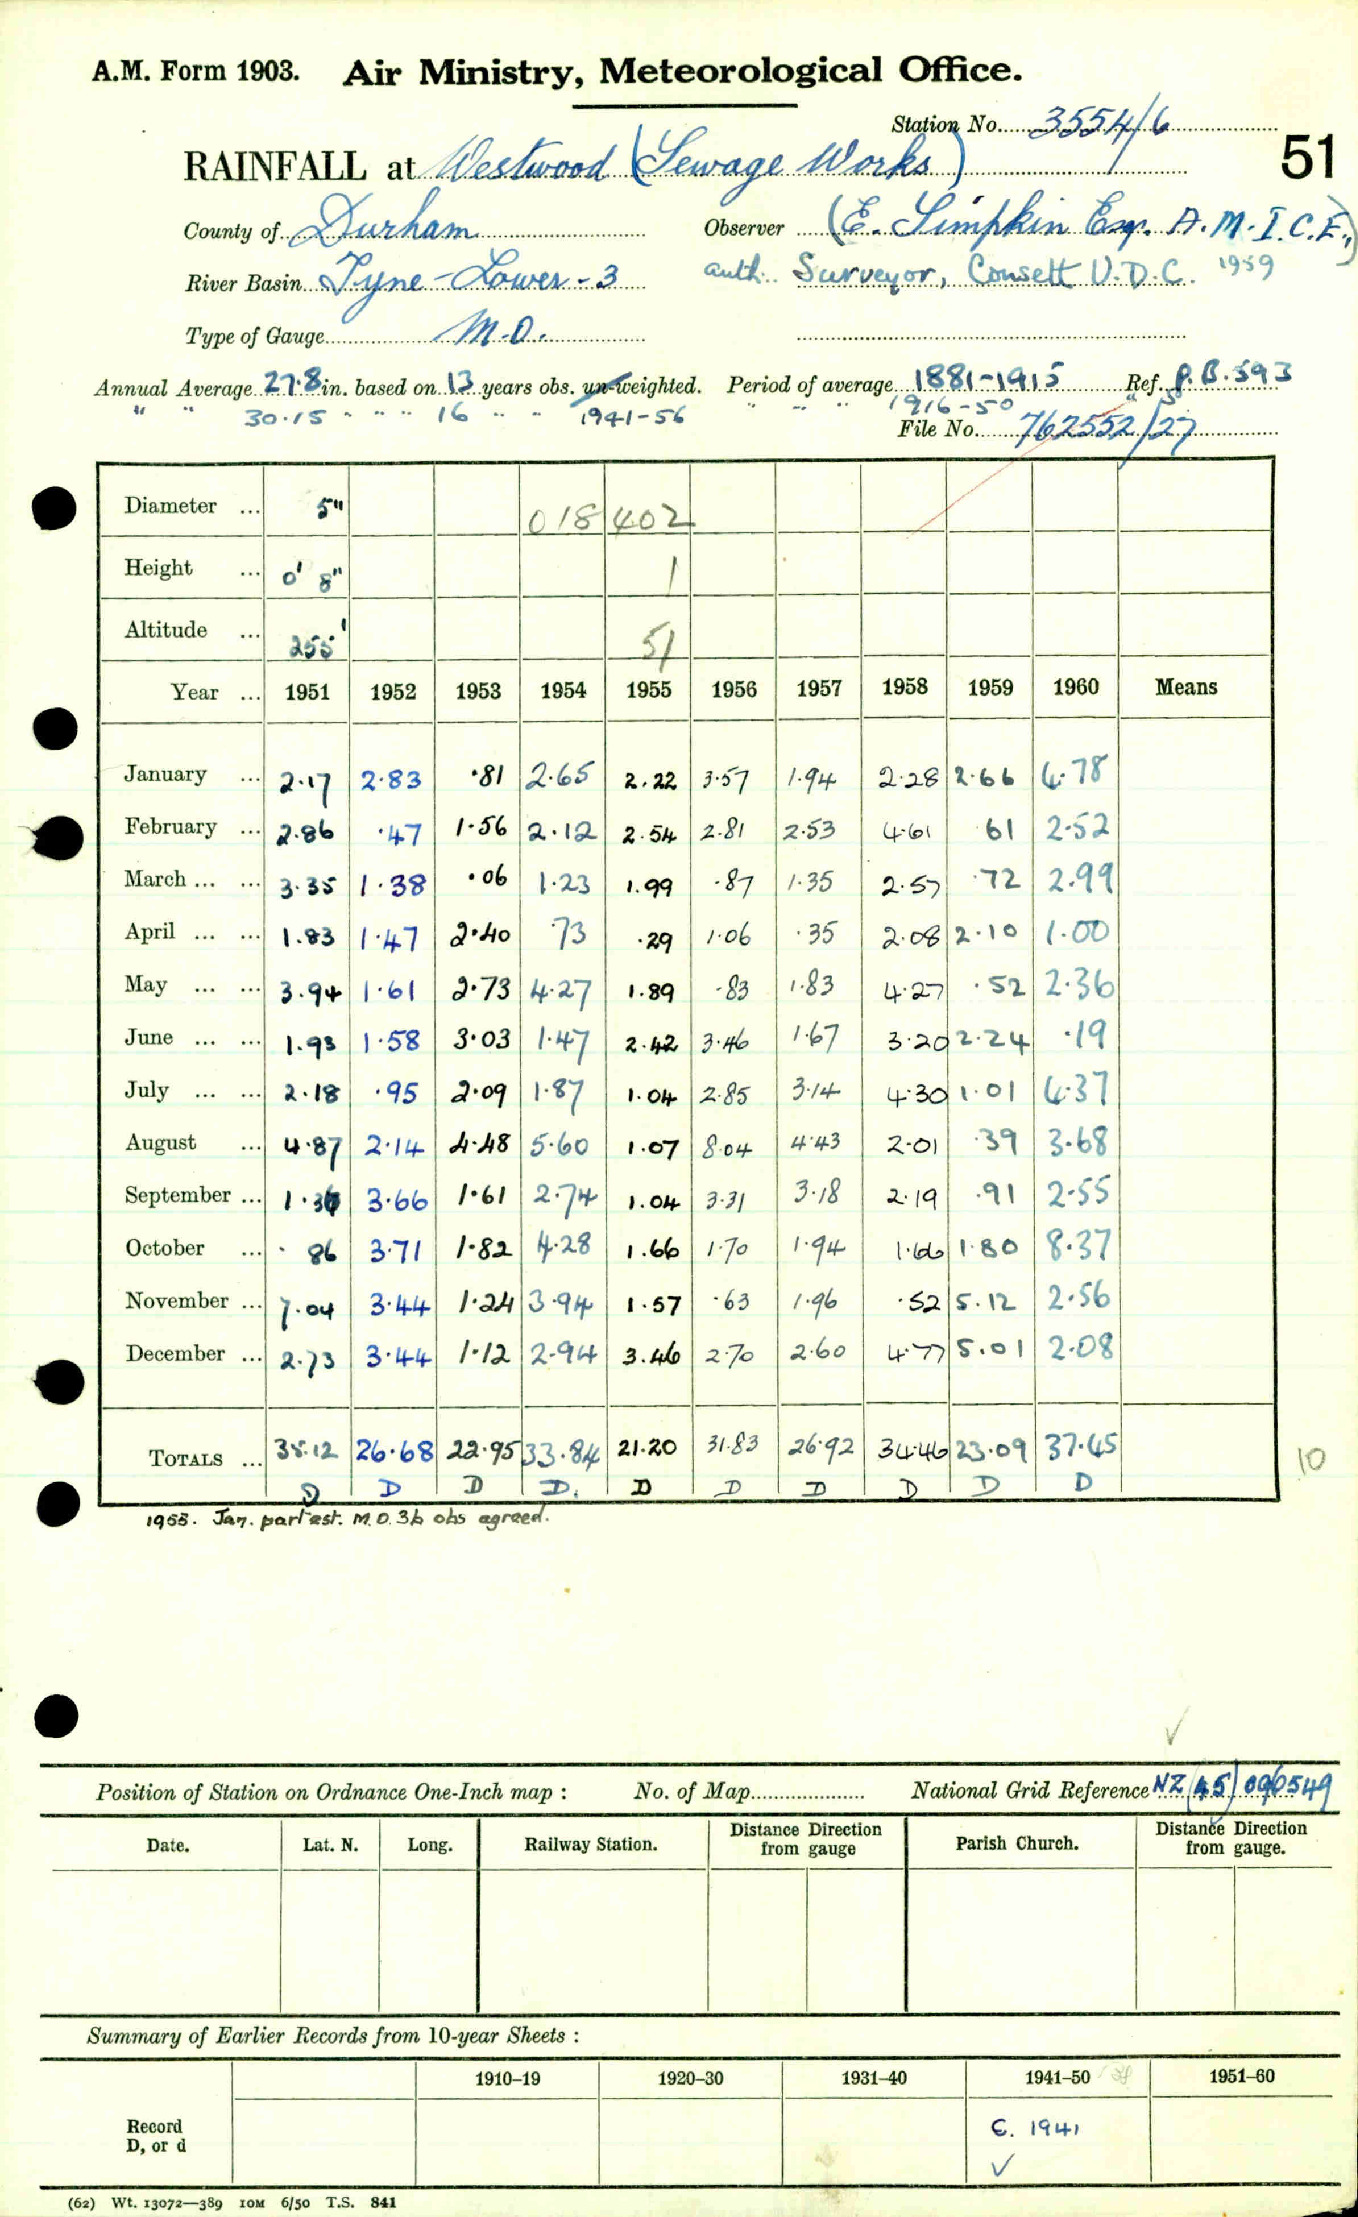 A.M. Form 1903. Air Ministry, Meteorological Office.
Station No. 3554/6
51
RAINFALL at Westwood (Sewage Works)
County of Durham Observer (E. Simpkin Esq. A.M.I.C.E.,)
River Basin Tyne - Lower - 3 auth. Surveyor, Consett U.D.C. 1959
Type of Gauge M.O.
Annual Average 27.8 in. based on 13 years obs. un-weighted. Period of average 1881-1915 Ref. P.B.593
" " 30.15 " " " 16 " " 1941-56 " " " 1916-50 "
File No. 762552/27
Diameter ... 5" 018402
Height ... 0' 8" 1
Altitude ... 255' 51
Year ... 1951 1952 1953 1954 1955 1956 1957 1958 1959 1960 Means
January ... 2.17 2.83 .81 2.65 2.22 3.57 1.94 2.28 2.66 4.78
February ... 2.86 .47 1.56 2.12 2.54 2.81 2.53 4.61 61 2.52
March ... ... 3.35 1.38 .06 1.23 1.99 .87 1.35 2.57 .72 2.99
April ... ... 1.83 1.47 2.40 .73 .29 1.06 .35 2.08 2.10 1.00
May ... ... 3.94 1.61 2.73 4.27 1.89 .83 1.83 4.27 .52 2.36
June ... ... 1.93 1.58 3.03 1.47 2.42 3.46 1.67 3.20 2.24 .19
July ... ... 2.18 .95 2.09 1.87 1.04 2.85 3.14 4.30 1.01 4.37
August ... 4.87 2.14 4.48 5.60 1.07 8.04 4.43 2.01 .39 3.68
September ... 1.36 3.66 1.61 2.74 1.04 3.31 3.18 2.19 .91 2.55
October ... .86 3.71 1.82 4.28 1.66 1.70 1.94 1.66 1.80 8.37
November ... 7.04 3.44 1.24 3.94 1.57 .63 1.96 .52 5.12 2.56
December ... 2.73 3.44 1.12 2.94 3.46 2.70 2.60 4.77 5.01 2.08
TOTALS ... 35.12 26.68 22.95 33.84 21.20 31.83 26.92 34.46 23.09 37.45
10
D D D D. D D D D D D
Jan. part est. M.O. 3b obs agreed.
Position of Station on Ordnance One-Inch map : No. of Map National Grid Reference NZ (45) 090549
Date. Lat. N. Long. Railway Station. Distance Direction from gauge Parish Church. Distance Direction from gauge.
Summary of Earlier Records from 10-year Sheets :
1910–19 1920–30 1931–40 1941–50 1951–60
Record
D, or d
C. 1941
✓
(62) Wt. 13072—389 10M 6/50 T.S. 841